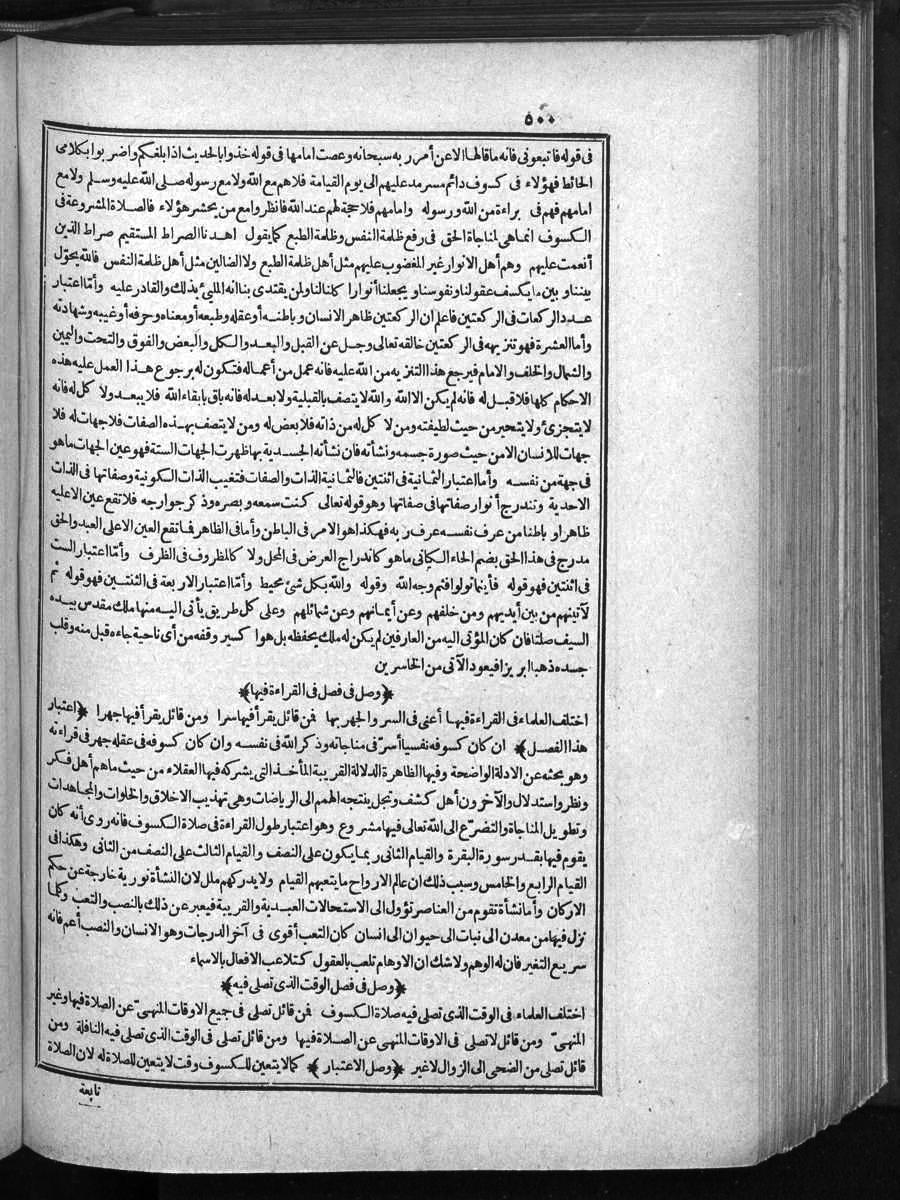 ٥٠٠
فى قوله فاتبعونى فانه ماقالها الا عن أمر ربه سبحانه وعصت امامها فى قوله خذوا بالحديث اذا بلغكم واضربوا بكلامى
الحائط فهؤلاء فى كسوف دائم مسرمد عليهم الى يوم القيامة فلا هم مع الله ولا مع رسوله صلى الله عليه وسلم ولا مع
امامهم فهم فى براءة من الله ورسوله وامامهم فلا حجة لهم عند الله فانظر وامع من يحشر هؤلاء فالصلاة المشروعة فى
الكسوف انما هى لمناجاة الحق فى رفع ظلمة النفس وظلمة الطبع كما يقول اهدنا الصراط المستقيم صراط الذين
أنعمت عليهم وهم أهل الانوار غير المغضوب عليهم مثل أهل ظلمة الطبع ولا الضالين مثل أهل ظلمة النفس فالله يحوّل
بيننا وبين ما يكسف عقولنا ونفوسنا ويجعلنا أنوارا كلنا لنا ولمن يقتدى بنا انه الملىّ بذلك والقادر عليه وأمّا اعتبار
عدد الركعات فى الركعتين فاعلم ان الركعتين ظاهر الانسان وباطنه أو عقله وطبعه أو معناه وحرفه أو غيبه وشهادته
وأما العشرة فهو تنزيهه فى الركعتين خالقه تعالى وجل عن القبل والبعد والكل والبعض والفوق والتحت واليمين
والشمال والخلف والامام فيرجع هذا التنزيه من الله عليه فانه عمل من أعماله فتكون له برجوع هذا العمل عليه هذه
الاحكام كلها فلا قبل له فانه لم يكن الا الله والله لا يتصف بالقبلية ولا بعد له فانه باق بابقاء الله فلا يبعد ولا كل له فانه
لا يتجزئ ولا يتحيز من حيث لطيفته ومن لا كل له من ذاته فلا بعض له ومن لا يتصف بهذه الصفات فلا جهات له فلا
جهات للانسان الا من حيث صورة جسمه ونشأته فان نشأته الجسدية بها ظهرت الجهات الستة فهو عين الجهات ما هو
فى جهة من نفسه وأما اعتبار الثمانية فى اثنتين فالثمانية الذات والصفات فتغيب الذات الكونية وصفاتها فى الذات
الاحدية وتندرج أنوار صفاتها فى صفاتها وهو قوله تعالى كنت سمعه وبصره وذكر جوارحه فلا تقع عين الا عليه
ظاهرا و باطنا من عرف نفسه عرف ربه فهكذا هو الامر فى الباطن وأما فى الظاهر فما تقع العين الا على العبد والحق
مدرج فى هذا الحق بضم الحاء الكيانى ما هو كاندراج العرض فى المحل ولا كالمظروف فى الظرف وأمّا اعتبار الست
فى اثنتين فهو قوله فأينما تولوا فثم وجه الله وقوله والله بكل شئ محيط وأمّا اعتبار الاربعة فى الثنتين فهو قوله ثم
لآتينهم من بين أيديهم ومن خلفهم وعن أيمانهم وعن شمائلهم وعلى كل طريق يأتى اليه منها ملك مقدس بيده
السيف صلتا فان كان المؤتى اليه من العارفين لم يكن له ملك يحفظه بل هوا كسير وقفه من أى ناحية جاءه قبل منه وقلب
جسده ذهبا ابريزا فيعود الآتى من الخاسرين
﴿وصل فى فصل فى القراءة فيها﴾
اختلف العلماء فى القراءة فيها أعنى فى السر والجهر بها فمن قائل يقرأ فيها سرا ومن قائل يقرأ فيها جهرا ﴿اعتبار
هذا الفصل﴾ ان كان كسوفه نفسيا أسرّ فى مناجاته وذكر الله فى نفسه وان كان كسوفه فى عقله جهر فى قراءته
وهو بحثه عن الادلة الواضحة وفيها الظاهرة الدلالة القريبة المأخذ التى يشركه فيها العقلاء من حيث ما هم أهل فكر
ونظر واستدلال والآخرون أهل كشف وتجل ينتجه الهمم الى الرياضات وهى تهذيب الاخلاق والخلوات والمجاهدات
وتطويل المناجاة والتضرّع الى الله تعالى فيها مشروع وهو اعتبار طول القراءة فى صلاة الكسوف فانه روى أنه كان
يقوم فيها بقدر سورة البقرة والقيام الثانى ربما يكون على النصف والقيام الثالث على النصف من الثانى وهكذا فى
القيام الرابع والخامس وسبب ذلك ان عالم الارواح ما يتعبهم القيام ولا يدركهم ملل لان النشأة نورية خارجة عن حكم
الاركان وأما نشأة تقوم من العناصر تؤول الى الاستحالات العبدية والقريبة فيعبر عن ذلك بالنصب والتعب وكلما
نزل فيها من معدن الى نبات الى حيوان الى انسان كان التعب أقوى فى آخر الدرجات وهو الانسان والنصب أعم فانه
سريع التغير فان له الوهم ولا شك ان الاوهام تلعب بالعقول كتلاعب الافعال بالاسماء
﴿وصل فى فصل الوقت الذى تصلى فيه﴾
اختلف العلماء فى الوقت الذى تصلى فيه صلاة الكسوف فمن قائل تصلى فى جميع الاوقات المنهىّ عن الصلاة فيها وغير
المنهىّ ومن قائل لا تصلى فى الاوقات المنهى عن الصلاة فيها ومن قائل تصلى فى الوقت الذى تصلى فيه النافلة ومن
قائل تصلى من الضحى الى الزوال لا غير ﴿وصل الاعتبار﴾ كما لا يتعين للكسوف وقت لا يتعين للصلاة له لان الصلاة
تابعة